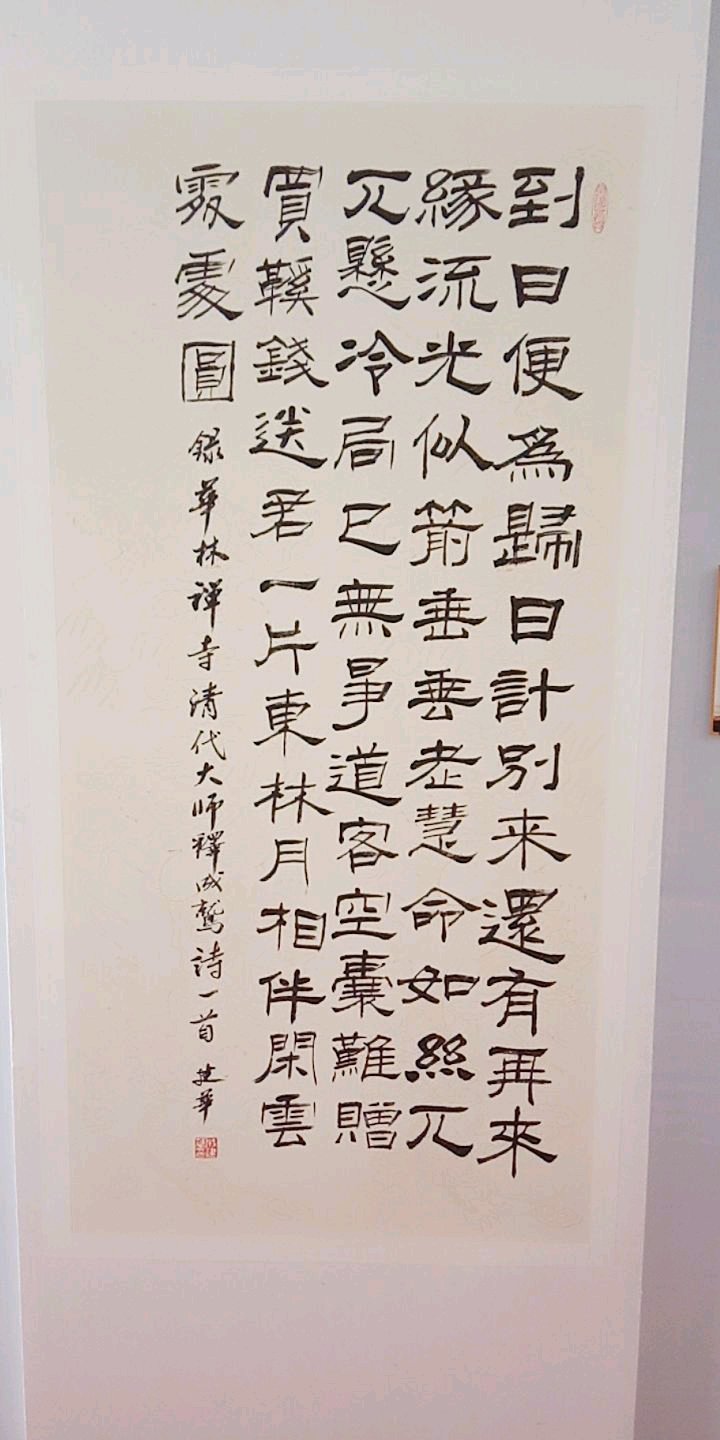 到日便為歸日計別来還有再來
緣流光似箭垂垂老慧命如絲兀
兀懸冷局已無爭道客空囊難贈
買鞵錢送君一片東林月相伴閑雲
處處圓 録華林禅寺清代大师釋成鷲詩一首 建華